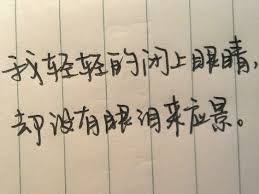 我轻轻的闭上眼睛,
却没有眼泪来应景。